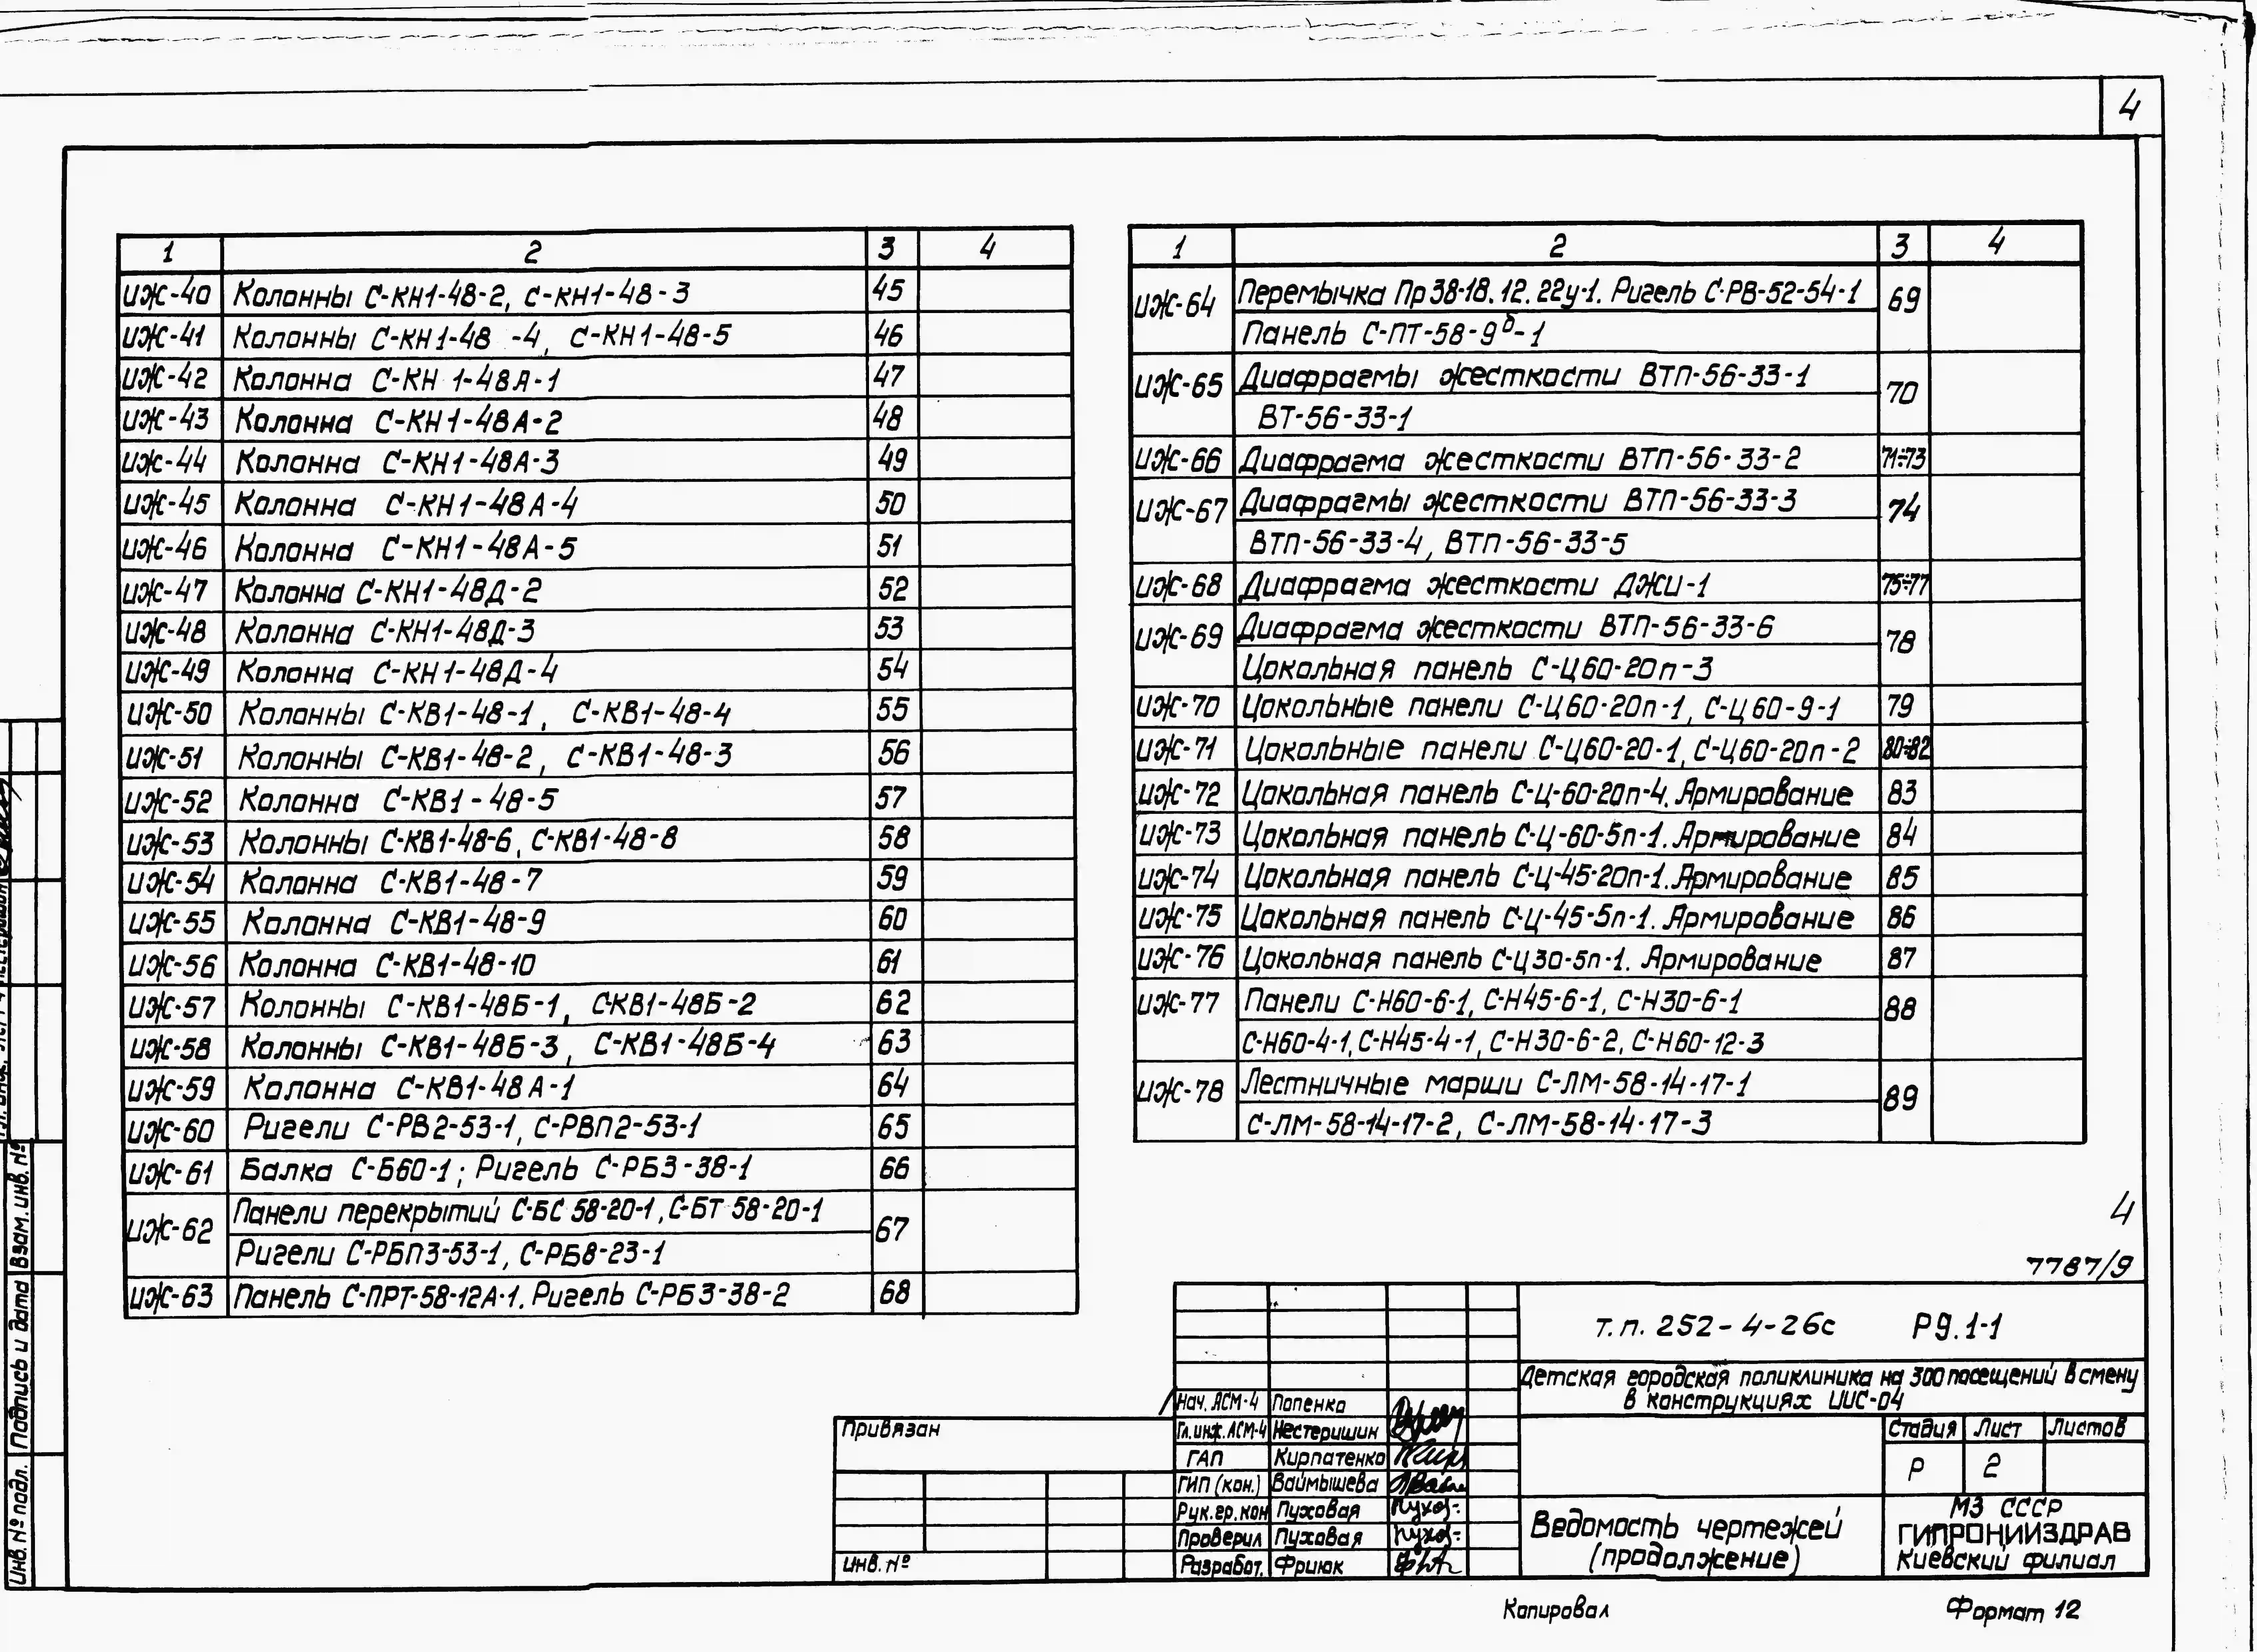 4
1 2 3 4
ИЖ-40 Колонны С-КН1-48-2, С-КН1-48-3 45
ИЖ-41 Колонны С-КН1-48 -4, С-КН1-48-5 46
ИЖ-42 Колонна С-КН 1-48А-1 47
ИЖ-43 Колонна С-КН1-48А-2 48
ИЖ-44 Колонна С-КН1-48А-3 49
ИЖ-45 Колонна С-КН1-48А-4 50
ИЖ-46 Колонна С-КН1-48А-5 51
ИЖ-47 Колонна С-КН1-48Д-2 52
ИЖ-48 Колонна С-КН1-48Д-3 53
ИЖ-49 Колонна С-КН1-48Д-4 54
ИЖ-50 Колонны С-КВ1-48-1, С-КВ1-48-4 55
ИЖ-51 Колонны С-КВ1-48-2, С-КВ1-48-3 56
ИЖ-52 Колонна С-КВ1-48-5 57
ИЖ-53 Колонны С-КВ1-48-6, С-КВ1-48-8 58
ИЖ-54 Колонна С-КВ1-48-7 59
ИЖ-55 Колонна С-КВ1-48-9 60
ИЖ-56 Колонна С-КВ1-48-10 61
ИЖ-57 Колонны С-КВ1-48Б-1, СКВ1-48Б-2 62
ИЖ-58 Колонны С-КВ1-48Б-3, С-КВ1-48Б-4 63
ИЖ-59 Колонна С-КВ1-48А-1 64
ИЖ-60 Ригели С-РВ2-53-1, С-РВП2-53-1 65
ИЖ-61 Балка С-Б60-1; Ригель С-РБ3-38-1 66
ИЖ-62 Панели перекрытий С-БС 58-20-1, С-БТ 58-20-1 67
Ригели С-РБП3-53-1, С-РБ8-23-1
ИЖ-63 Панель С-ПРТ-58-12А-1. Ригель С-РБ3-38-2 68
1 2 3 4
ИЖ-64 Перемычка Пр38-18.12.22у-1. Ригель С-РВ-52-54-1 69
Панель С-ПТ-58-9б-1
ИЖ-65 Диафрагмы жесткости ВТП-56-33-1 70
ВТ-56-33-1
ИЖ-66 Диафрагма жесткости ВТП-56-33-2 71÷73
ИЖ-67 Диафрагмы жесткости ВТП-56-33-3 74
ВТП-56-33-4, ВТП-56-33-5
ИЖ-68 Диафрагма жесткости ДЖИ-1 75÷77
ИЖ-69 Диафрагма жесткости ВТП-56-33-6 78
Цокольная панель С-Ц60-20п-3
ИЖ-70 Цокольные панели С-Ц60-20п-1, С-Ц60-9-1 79
ИЖ-71 Цокольные панели С-Ц60-20-1, С-Ц60-20п-2 80÷82
ИЖ-72 Цокольная панель С-Ц-60-20п-4. Армирование 83
ИЖ-73 Цокольная панель С-Ц-60-5п-1. Армирование 84
ИЖ-74 Цокольная панель С-Ц-45-20п-1. Армирование 85
ИЖ-75 Цокольная панель С-Ц-45-5п-1. Армирование 86
ИЖ-76 Цокольная панель С-Ц30-5п-1. Армирование 87
ИЖ-77 Панели С-Н60-6-1, С-Н45-6-1, С-Н30-6-1 88
С-Н60-4-1, С-Н45-4-1, С-Н30-6-2, С-Н60-12-3
ИЖ-78 Лестничные марши С-ЛМ-58-14-17-1 89
С-ЛМ-58-14-17-2, С-ЛМ-58-14-17-3
4
7787/9
Т.П. 252-4-26с Р9.1-1
Детская городская поликлиника на 300 посещений в смену
в конструкциях ИИС-04
Нач. АСМ-4 Попенко
Гл.инж.АСМ-4 Нестеришин
ГАП Кирпатенко
ГИП (кон.) Ваймышева
Рук.гр.кон Пуховая
Проверил Пуховая
Разработ. Фриюк
Привязан
Инв. №
Стадия Лист Листов
Р 2
Ведомость чертежей
(продолжение)
МЗ СССР
ГИПРОНИИЗДРАВ
Киевский филиал
Копировал Формат 12
Инв. № подл. Подпись и дата Взам. инв. №